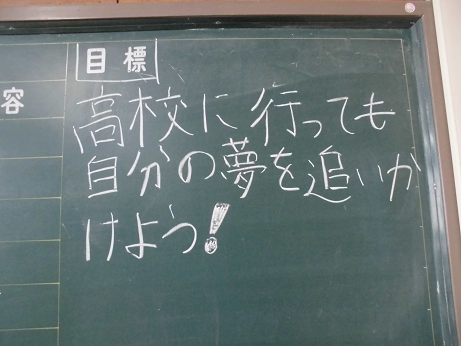 目標
容
高校に行っても
自分の夢を追いか
けよう!